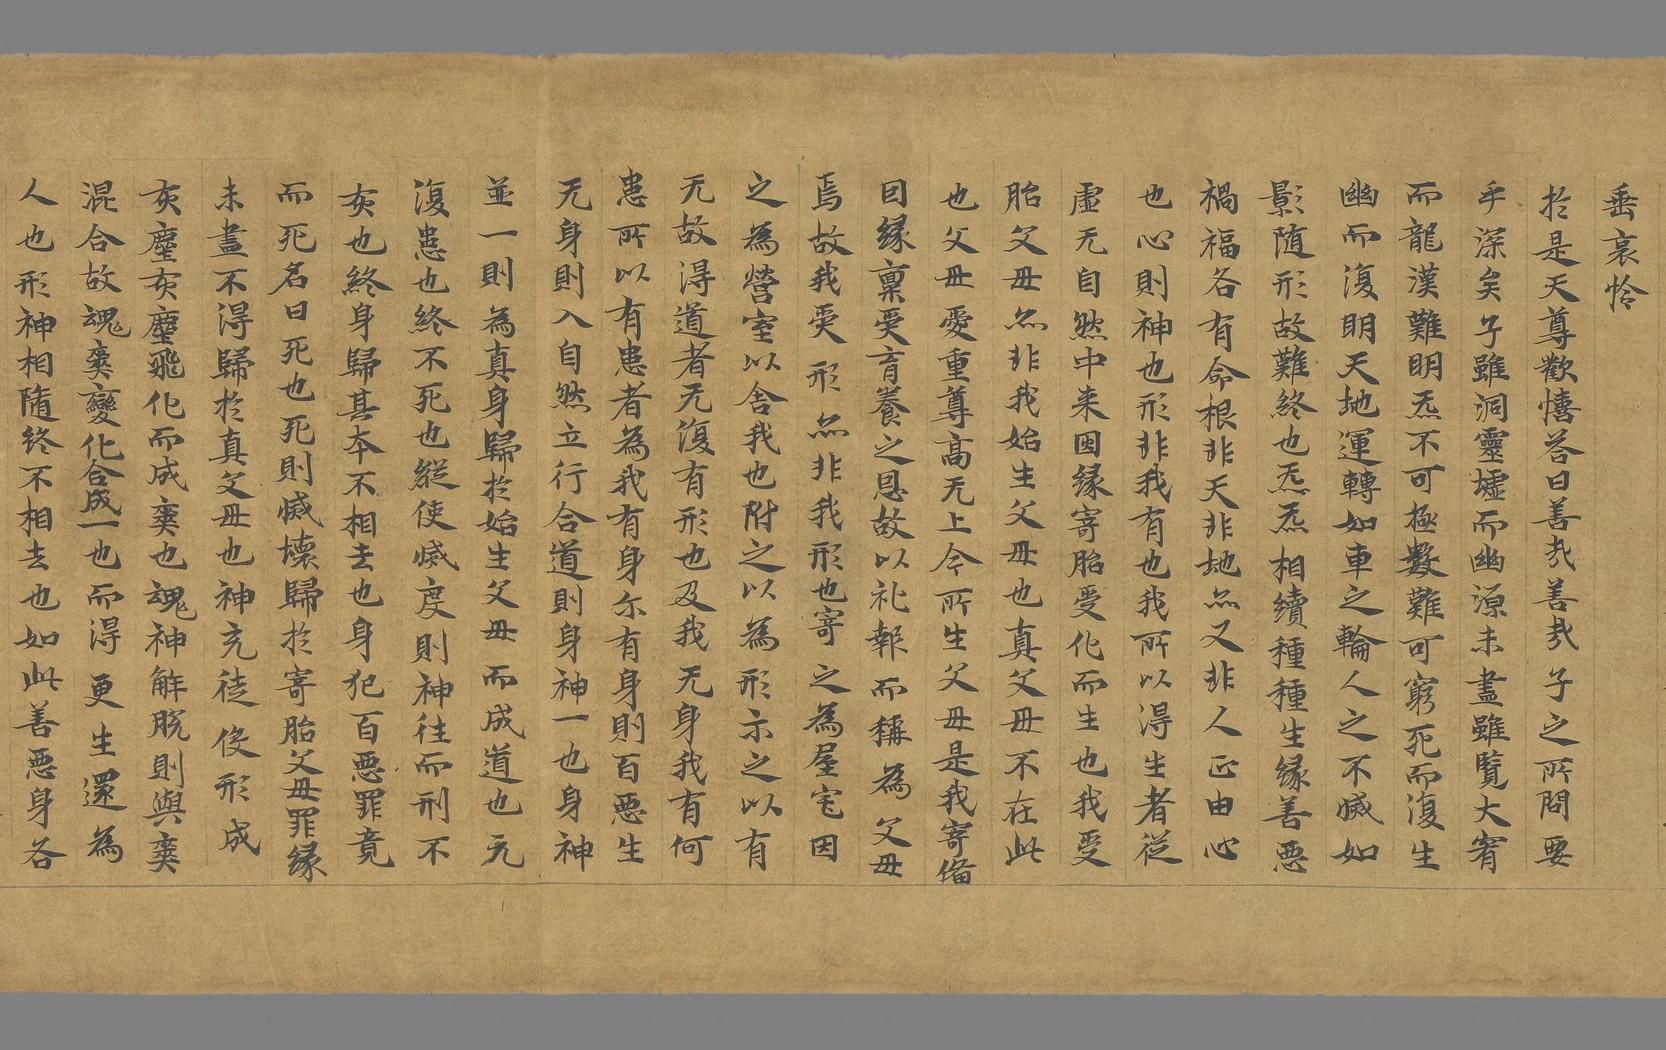 垂哀怜
於是天尊歡憘荅曰善哉善哉子之所問要
乎深矣子雖洞靈墟而幽源未盡雖覽大䆟
而龍漢難明炁不可極數難可窮死而復生
幽而復明天地運轉如車之輪人之不滅如
影随形故難終也炁炁相續種種生緣善惡
禍福各有命根非天非地亦又非人正由心
也心則神也形非我有也我所以得生者從
虛无自然中来因緣寄胎受化而生也我受
胎父母亦非我始生父母也真父母不在此
也父母愛重尊高无上今所生父母是我寄備
因緣稟受育養之恩故以礼報而稱為父母
焉故我受形亦非我形也寄之為屋宅因
之為營室以舍我也附之以為形示之以有
无故得道者无復有形也及我无身我有何
患所以有患者為我有身尒有身則百惡生
无身則入自然立行合道則身神一也身神
並一則為真身歸於始生父母而成道也无
復患也終不死也縱使滅度則神往而形不
灰也終身歸其本不相去也身犯百惡罪竟
而死名曰死也死則滅壞歸於寄胎父母罪緣
未盡不得歸於真父母也神充徒役形成
灰塵灰塵飛化而成䆠也魂神解脫則與䆠
混合故魂䆠變化合成一也而得更生還為
人也形神相隨終不相去也如此善惡身各